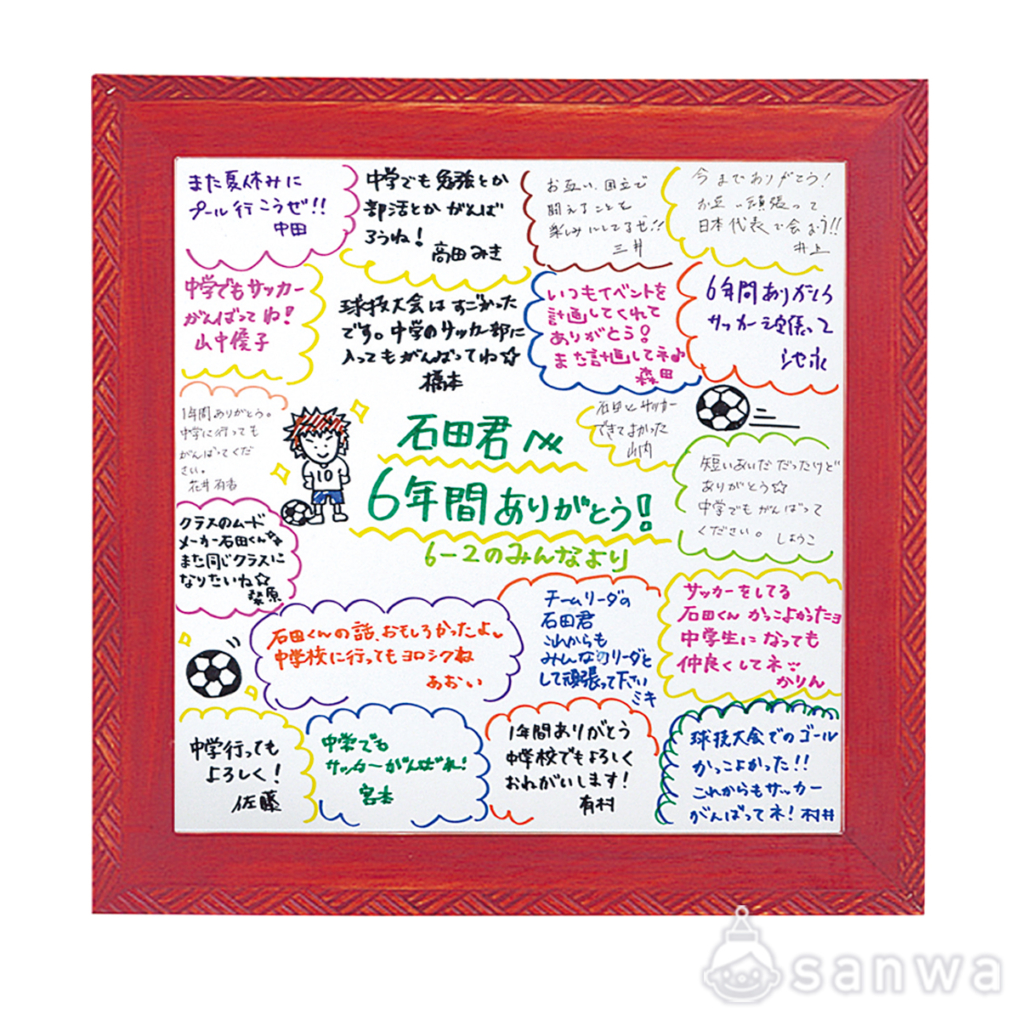 また夏休みに
プール行こうぜ!!
中田
中学でも勉強とか
部活とかがんば
ろうね!
高田みき
お互い、国立で
闘えることを
楽しみにしてるぜ!!
三井
今までありがとう!
お互い頑張って
日本代表で会おう!!
井上
中学でもサッカー
がんばってね!
山中優子
球技大会はすごかった
です。中学のサッカー部に
入ってもがんばってね☆
橋本
いつもイベントを
計画してくれて
ありがとう!
また計画してネ♪
森田
6年間ありがとう
サッカー
池永
1年間ありがとう。
中学に行っても
がんばってくだ
さい。
花井有香
10
石田君へ
6年間ありがとう!
6-2のみんなより
石田とサッカー
できてよかった
山内
短いあいだだったけど
ありがとう☆
中学でもがんばって
ください。しょうこ
クラスのムード
メーカー石田くん
また同じクラスに
なりたいね☆
石田くんの話、おもしろかったよ
中学校に行ってもヨロシクね
あおい
チームリーダの
石田君
これからも
みんなのリーダと
して頑張って下さい
ミキ
サッカーをしてる
石田くんかっこよかったヨ
中学生になっても
仲良くしてネ
かりん
中学行っても
よろしく!
佐藤
中学でも
サッカーがんばれ!
宮本
1年間ありがとう
中学校でもよろしく
おねがいします!
有村
球技大会でのゴール
かっこよかった!!
これからもサッカー
がんばってネ!村井
sanwa